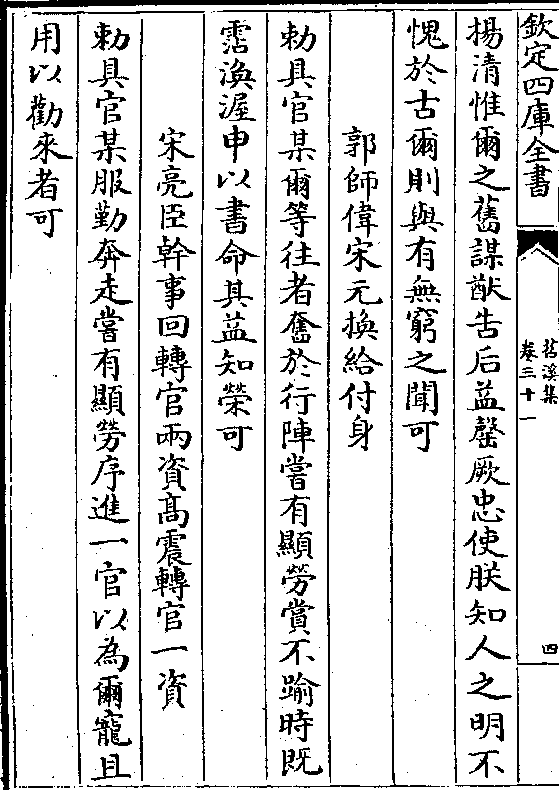 欽定四庫全書
苕溪集
卷三十一
四
揚清惟爾之舊謀猷告后益罄厥忠使朕知人之明不
愧於古爾則與有無窮之聞可
郭師偉宋元換給付身
勅具官某爾等往者奮於行陣嘗有顯勞賞不踰時既
霑渙渥申以書命其益知榮可
宋亮臣幹事回轉官兩資髙震轉官一資
勅具官某服勤奔走嘗有顯勞序進一官以為爾寵且
用以勸來者可